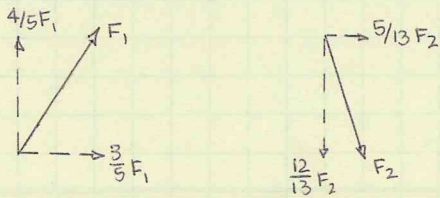 4/5F₁
F₁
3/5 F₁
5/13 F₂
12/13 F₂
F₂